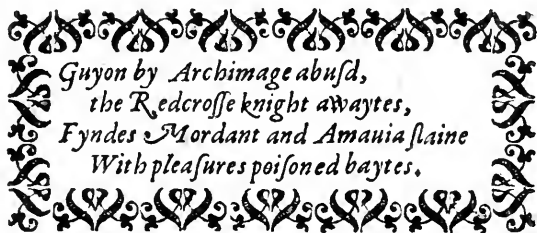 Guyon by Archimage abuſd,
the Redcroſſe knight awaytes,
Fyndes Mordant and Amauia ſlaine
With pleaſures poiſoned baytes.